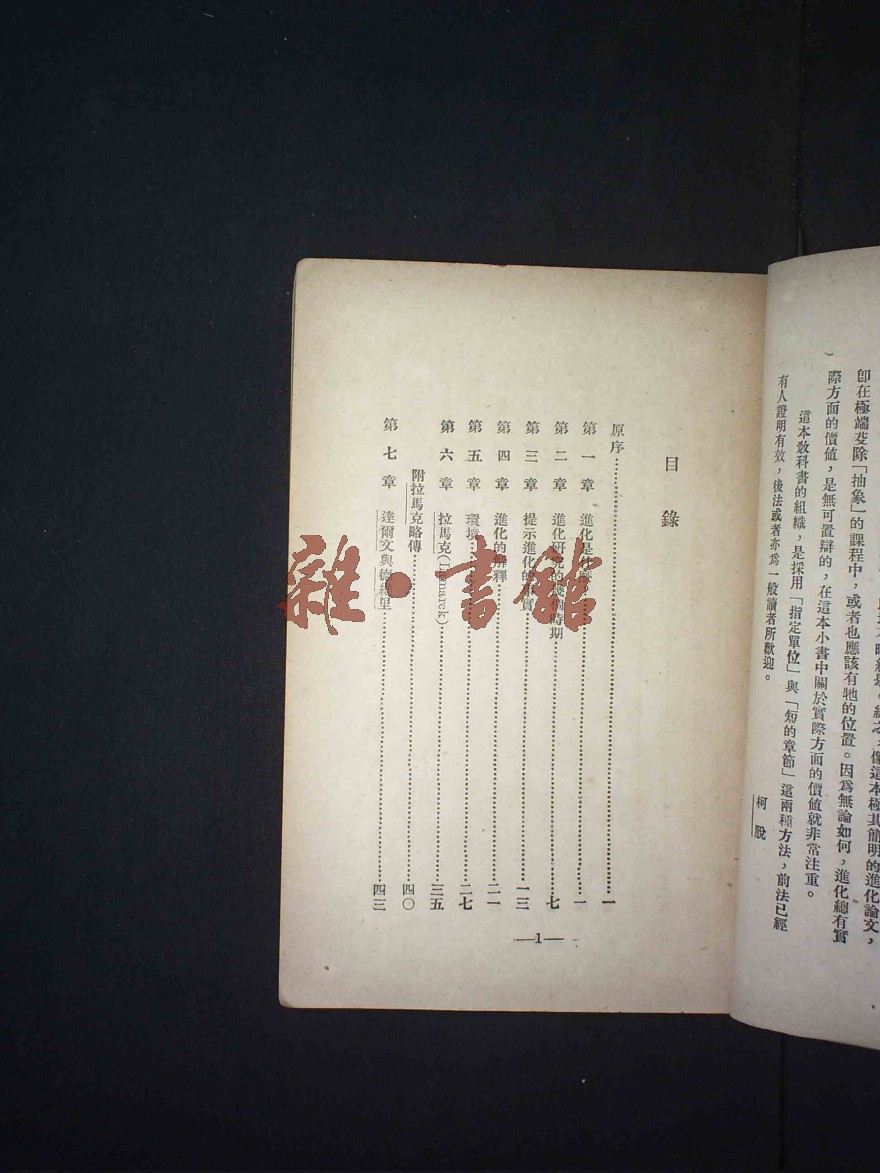 即在極端芟除「抽象」的課程中，或者也應該有牠的位置。因爲無論如何，進化總有實
際方面的價値，是無可置辯的，在這本小書中關於實際方面的價値就非常注重。
這本敎科書的組織，是採用「指定單位」與「短的章節」這兩種方法，前法已經
有人證明有效，後法或者亦爲一般讀者所歡迎。
柯脫
目錄
原序……一
第一章 進化是……一
第二章 進化研究的幾個時期……七
第三章 提示進化的事實……一三
第四章 進化的解釋……二一
第五章 環境……二七
第六章 拉馬克(Lamarck)……三五
附拉馬克略傳……四〇
第七章 達爾文與德……里……四三
—1—
雜·書館